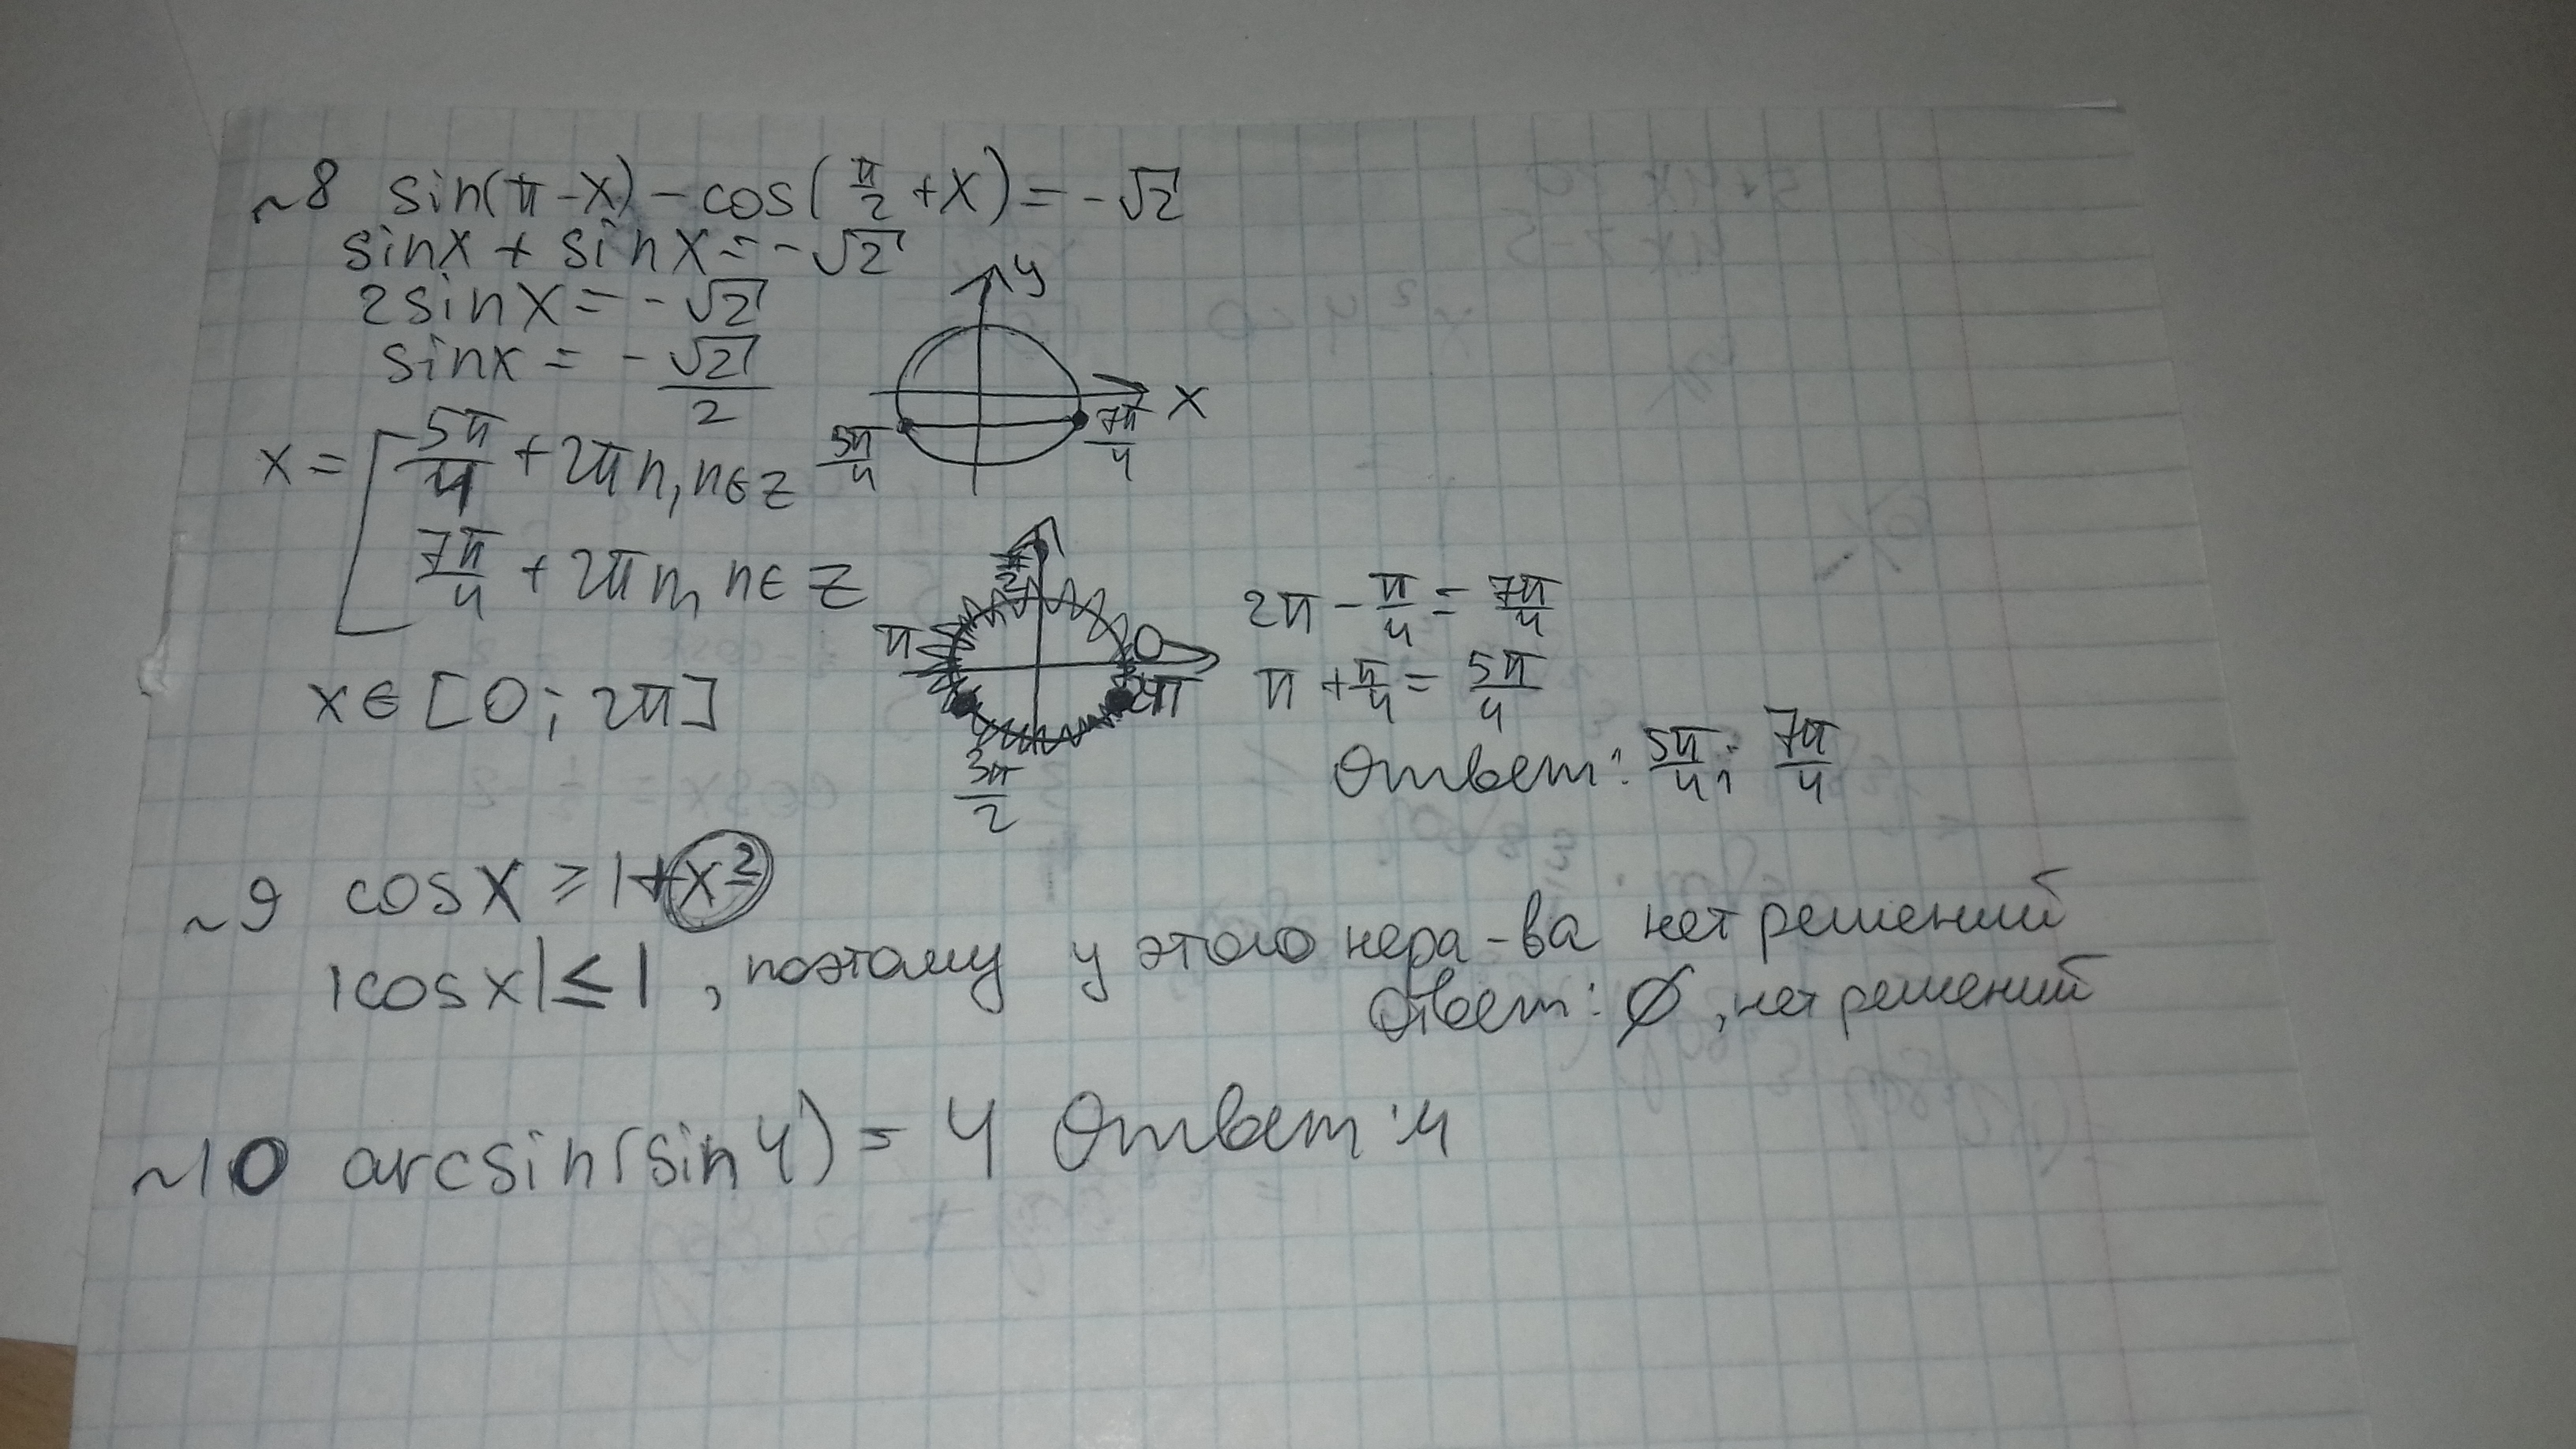 ~8 sin(π-x) - cos(π/2 + x) = -√2
sinx + sinx = -√2
2sinx = -√2
sinx = -√2/2
x = [ 5π/4 + 2πn, n∈z
7π/4 + 2πn, n∈z
y
x
5π/4
7π/4
x∈[0; 2π]
π/2
π
0
2π
3π/2
2π - π/4 = 7π/4
π + π/4 = 5π/4
Ответ: 5π/4; 7π/4
~9 cosx ≥ 1+x²
|cosx| ≤ 1, поэтому у этого нера-ва нет решений
Ответ: ∅, нет решений
~10 arcsin(sin4) = 4 Ответ: 4